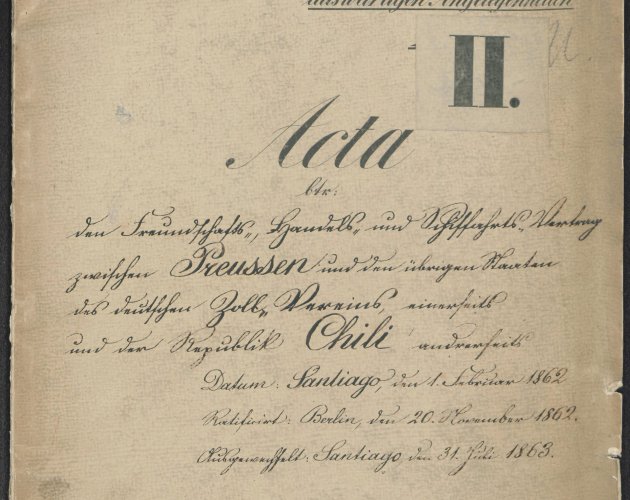 auswärtigen Angelegenheiten
II.
Acta
btr:
den Freundschafts-, Handels- und Schifffahrts-Vertrag
zwischen Preussen und den übrigen Staaten
des deutschen Zoll-Vereins einerseits
und der Republik Chili andrerseits
Datum: Santiago, den 1. Februar 1862
Ratificirt: Berlin, den 20. November 1862.
Ausgewechselt: Santiago, den 31. Juli 1863.